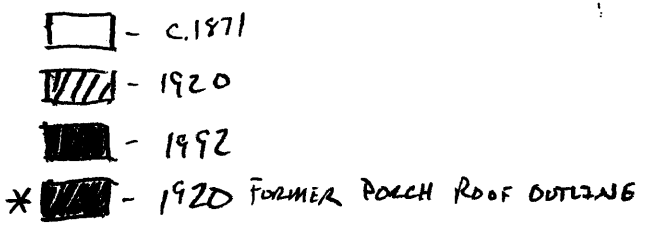 - c.1871
- 1920
- 1992
* - 1920 FORMER PORCH ROOF OUTLINE